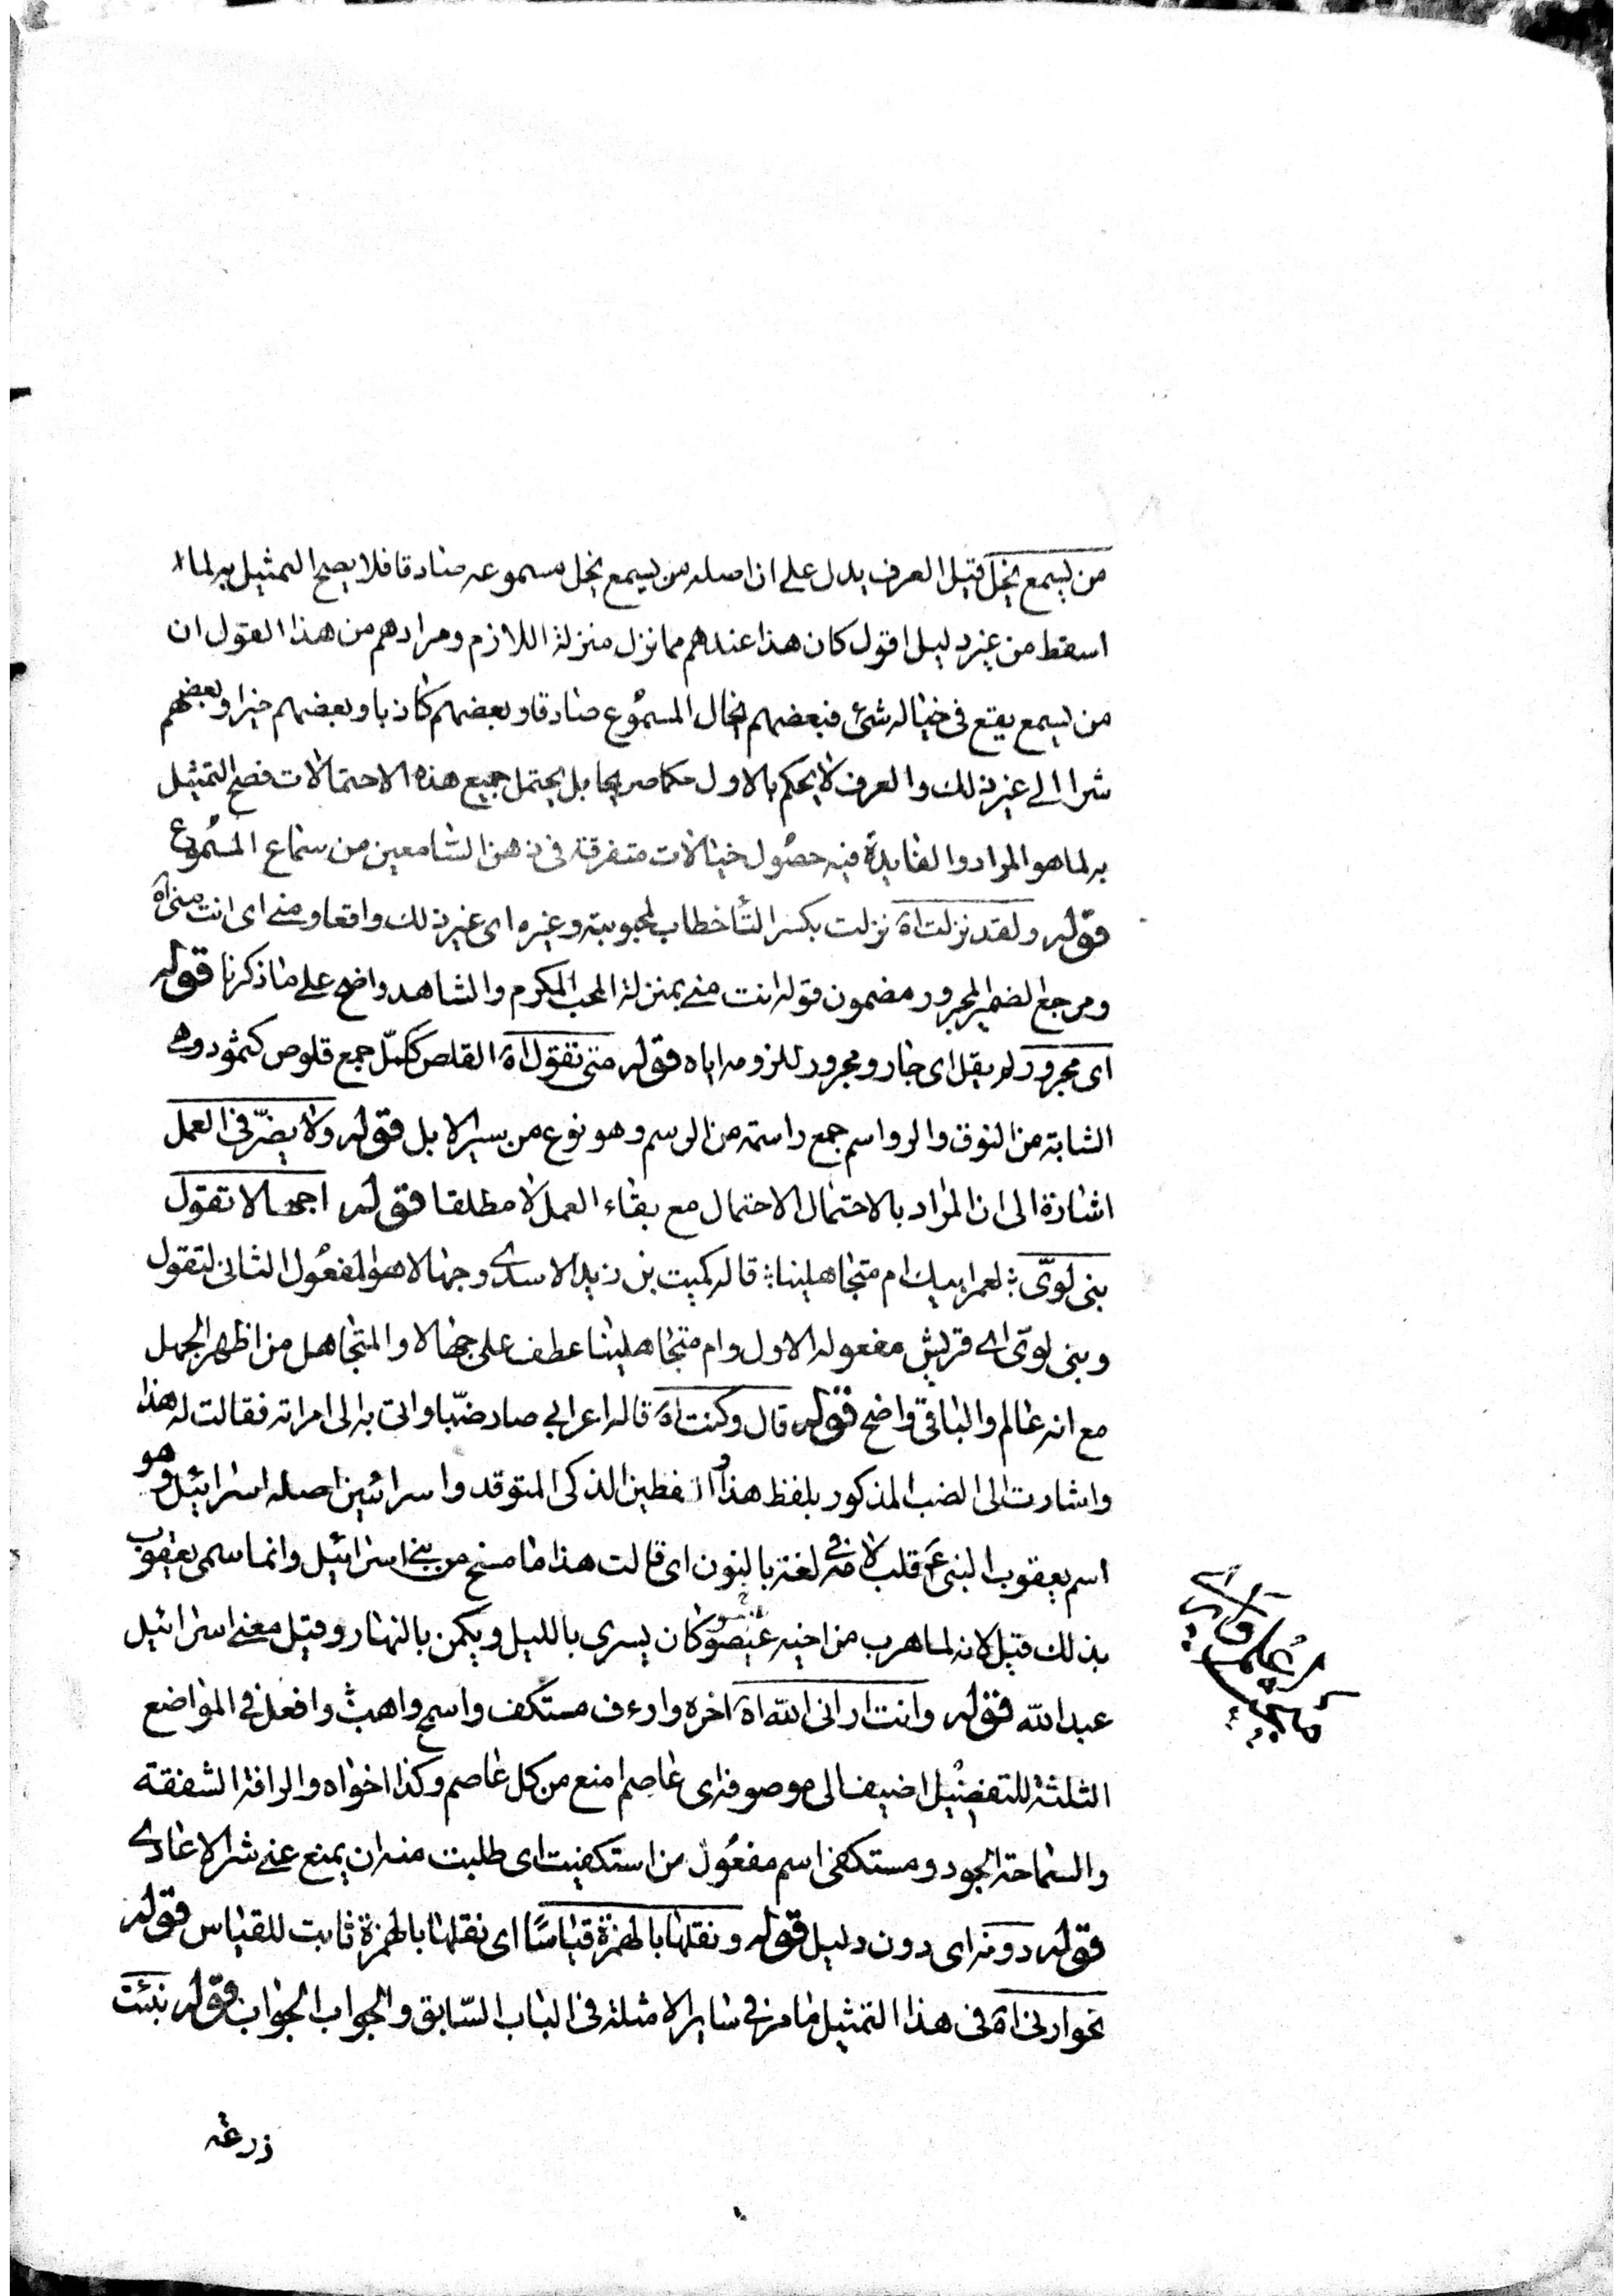 من يسمع يخل قيل العرف يدل على ان اصله من يسمع يخل مسموعه صادقا فلا يصح التمثيل به لما
اسقط من غير دليل اقول كان هذا عندهم مما نزل منزلة اللازم ومرادهم من هذا القول ان
من يسمع يقع فى خياله شئ فبعضهم يخال المسموع صادقا وبعضهم كاذبا وبعضهم خيرا وبعضهم
شرا الى غير ذلك والعرف لا يحكم بالاول حكما صريحا بل يحتمل جميع هذه الاحتمالات فصح التمثيل
به لما هو المراد والفايدة فيه حصول خيالات متفرقة فى ذهن السامعين من سماع المسموع
قوله ولقد نزلت اه نزلت بكسر التأ خطاب لمحبوبته وغيره اى غير ذلك واقعا ومنى اى انت منى اه
ومرجع الضمير المجرور مضمون قوله انت منى بمنزلة المحب المكرم والشاهد واضح على ما ذكرنا قوله
اى مجرور لم يقل اى جار ومجرور للزومه اياه قوله متى تقول اه القلص ككتل جمع قلوص كثمود وهى
الشابة من النوق والرواسم جمع راسمة من الرسم وهو نوع من سير الابل قوله ولا يضر فى العمل
اشارة الى ان المراد بالاحتمال الاحتمال مع بقاء العمل لا مطلقا قوله اجهالا تقول
بنى لوىّ ؛ لعمر ابيك ام متجاهلينا ؛ قاله كميت بن زيد الاسدى وجهالا هو المفعول الثانى لتقول
وبنى لوىّ اى قريش مفعوله الاول وام متجاهلينا عطف على جهالا والمتجاهل من اظهر الجهل
مع انه عالم والباقى واضح قوله قال وكنت اه قاله اعرابى صاد ضبّا واتى به الى امراته فقالت له هذا
واشارت الى الضب المذكور بلفظ هذا والفطين الذكى المتوقد واسرائين اصله اسرائيل وهو
اسم يعقوب النبى ع قلب لامه فى لغة بالنون اى قالت هذا ما مسخ من بنى اسرائيل وانما سمى يعقوب
بذلك قيل لانه لما هرب من اخيه عيصو كان يسرى بالليل ويكمن بالنهار وقيل معنى اسرائيل
عبد الله قوله وانت ارانى الله اه اخره وارءف مستكف واسمح واهب وافعل فى المواضع
الثلثة للتفضيل اضيف الى موصوفه اى عاصم امنع من كل عاصم وكذا اخواه والرافة الشفقة
والسماحة الجود ومستكفى اسم مفعول من استكفيت اى طلبت منه ان يمنع عنى شر الاعادى
قوله دونه اى دون دليل قوله ونقلها بالهمزة قياسًا اى نقلها بالهمزة ثابت للقياس قوله
نحو ارنى اه فى هذا التمثيل ما مر فى ساير الامثلة فى الباب السّابق والجواب الجواب قوله نبئت
زرعة